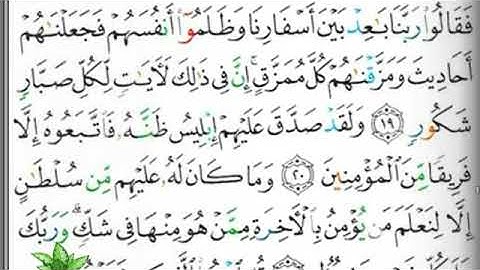 فَقَالُوا۟ رَبَّنَا بَـٰعِدْ بَيْنَ أَسْفَارِنَا وَظَلَمُوٓا۟ أَنفُسَهُمْ فَجَعَلْنَـٰهُمْ
أَحَادِيثَ وَمَزَّقْنَـٰهُمْ كُلَّ مُمَزَّقٍ ۚ إِنَّ فِى ذَٰلِكَ لَـَٔايَـٰتٍ لِّكُلِّ صَبَّارٍ
شَكُورٍ ١٩ وَلَقَدْ صَدَّقَ عَلَيْهِمْ إِبْلِيسُ ظَنَّهُۥ فَٱتَّبَعُوهُ إِلَّا
فَرِيقًا مِّنَ ٱلْمُؤْمِنِينَ ٢٠ وَمَا كَانَ لَهُۥ عَلَيْهِم مِّن سُلْطَـٰنٍ
إِلَّا لِنَعْلَمَ مَن يُؤْمِنُ بِٱلْـَٔاخِرَةِ مِمَّنْ هُوَ مِنْهَا فِى شَكٍّ ۗ وَرَبُّكَ